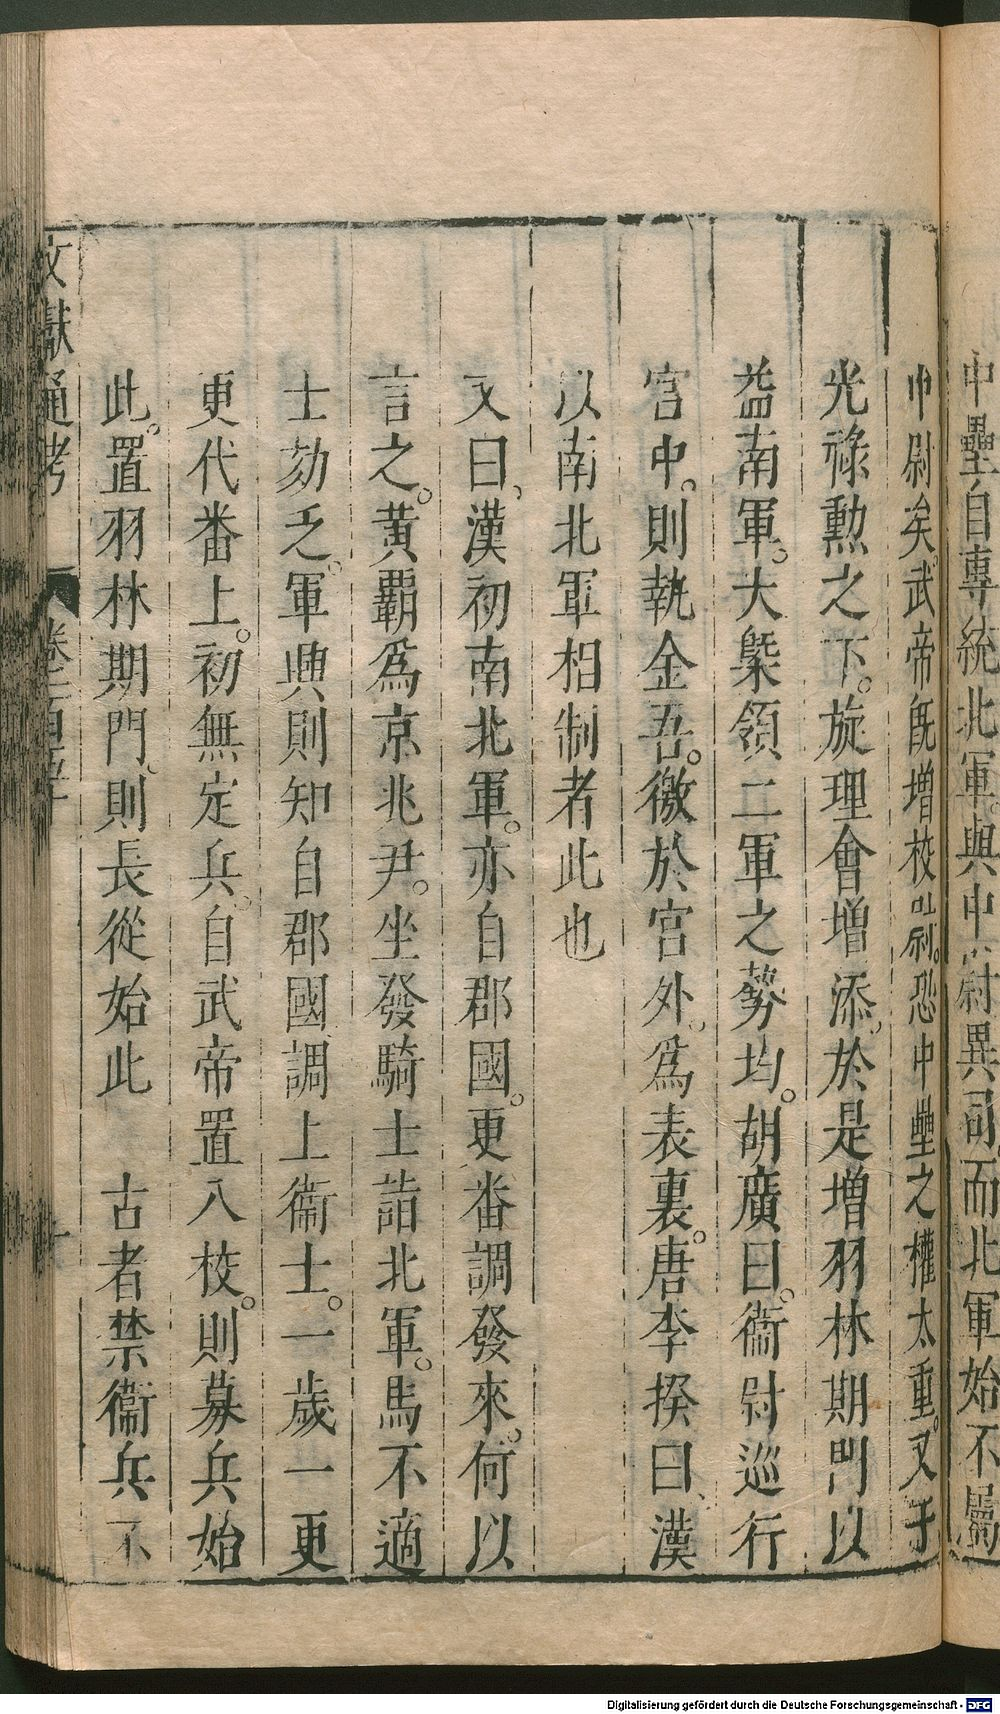 中壘自專統北軍。與中尉異司。而北軍始不屬
中尉矣。武帝旣增校尉。恐中壘之權太重。又于
光祿勲之下。旋理會增添。於是增羽林期門以
益南軍。大槩領二軍之勢均。胡廣曰。衞尉巡行
宮中。則執金吾。徼於宮外。爲表裏。唐李揆曰、漢
以南北軍相制者此也
又曰、漢初南北軍。亦自郡國。更畨調發來。何以
言之。黃覇爲京兆尹。坐發騎士詣北軍。馬不適
士劾乏。軍興則知自郡國調上衞士。一歲一更
更代畨上。初無定兵。自武帝置八校。則募兵始
此。置羽林期門、則長從始此　古者禁衞兵不
文獻通考　卷一百五十
十
Digitalisierung gefördert durch die Deutsche Forschungsgemeinschaft - DFG